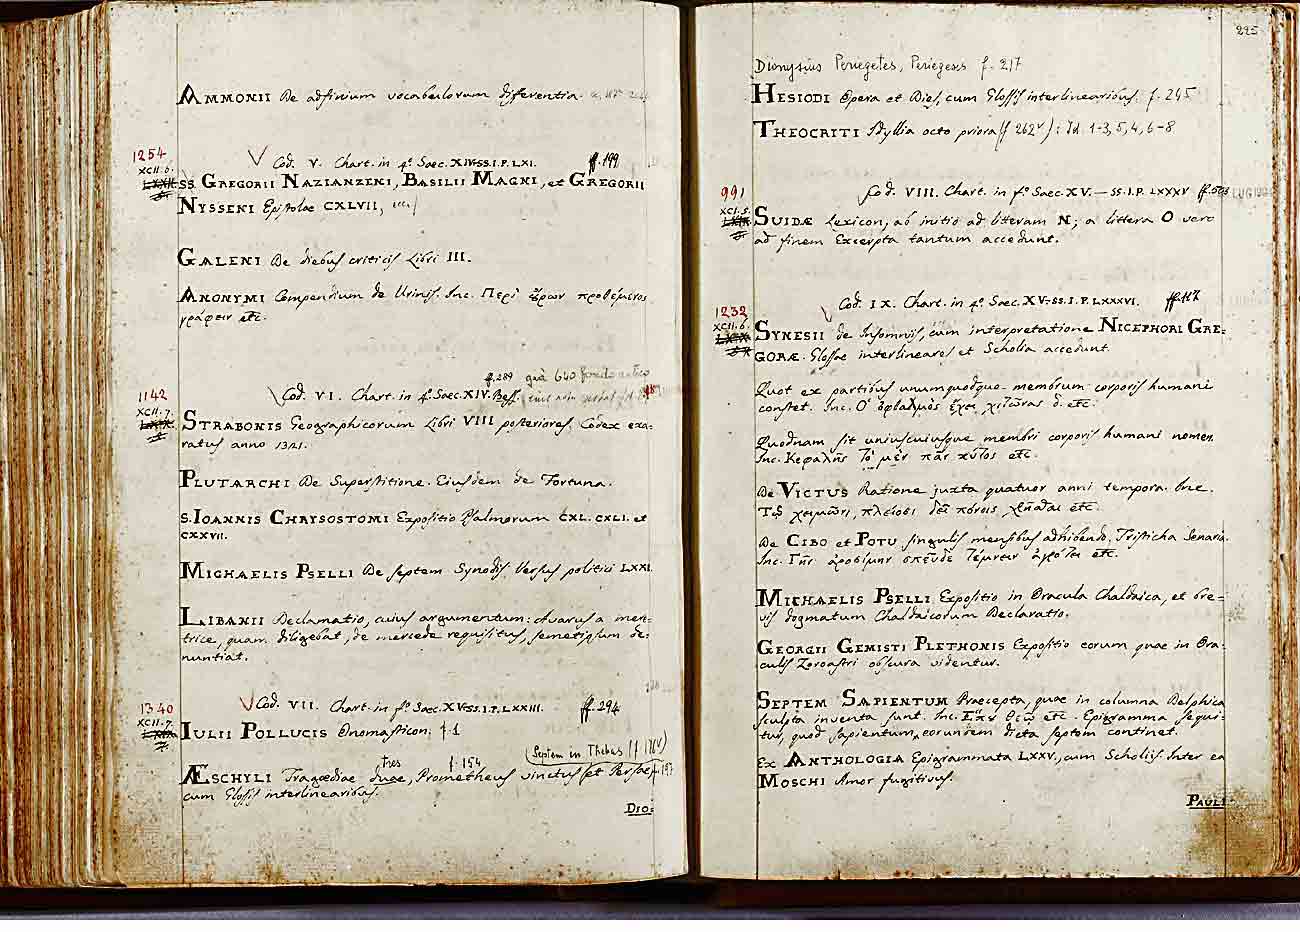 AMMONII De adfinium vocabulorum differentia.
1254
Cod. V. Chart. in 4º Saec. XIV. SS. I. P. LXI. ff. 199
XCII. 6.
SS. GREGORII NAZIANZENI, BASILII MAGNI, et GREGORII
NYSSENI Epistolae CXLVII,
GALENI De diebus criticis Libri III.
ANONYMI Compendium de Urinis. Inc. Περὶ ὔρων προθέμενος
γράφειν etc.
ff. 289
1142
Cod. VI. Chart. in 4º Saec. XIV. Bess.
XCII. 7.
STRABONIS Geographicorum Libri VIII posteriores, Codex exa-
ratus anno 1321.
PLUTARCHI De Superstitione. Eiusdem de Fortuna.
S. IOANNIS CHRYSOSTOMI Expositio Psalmorum CXL. CXLI. et
CXXVII.
MICHAELIS PSELLI De septem Synodis. Versus politici LXXI.
LIBANII Declamatio, cuius argumentum: Avarus a mere-
trice, quam diligebat, de mercede requisitus, semetipsum de-
nuntiat.
1340
Cod. VII. Chart. in fº Saec. XV. SS. I. P. LXXIII. ff. 294
XCII. 7.
IULII POLLUCIS Onomasticon. f. 1
Septem in Thebas (f. 176v)
tres f. 154
ÆSCHYLI Tragoediae duae, Prometheus vinctus et Persae f. 197
cum Glossis interlinearibus.
DIO:
225
Dionysius Periegetes, Periegesis f. 217
HESIODI Opera et Dies, cum Glossis interlinearibus. f. 245
THEOCRITI Idyllia octo priora (f 262v) : Id. 1-3, 5, 4, 6-8
991
Cod. VIII. Chart. in fº Saec. XV. — SS. I. P. LXXXV
XCI. 5.
SUIDÆ Lexicon, ab initio ad literam N; a littera O vero
ad finem Excerpta tantum accedunt.
Cod. IX. Chart. in 4º Saec. XV. SS. I. P. LXXXVI. ff. 117
1232
XCII. 6.
SYNESII de Insomniis, cum interpretatione NICEPHORI GRE-
GORÆ. Glossae interlineares et Scholia accedunt.
Quot ex partibus unumquodque membrum corporis humani
constet. Inc. Ὁ ὀφθαλμὸς ἔχει χιτῶνας δ. etc.
Quodnam sit uniuscuiusque membri corporis humani nomen.
Inc. Κεφαλῆς τὸ μὲν πᾶν κύτος etc.
De VICTUS Ratione juxta quatuor anni tempora. Inc.
Τῷ χειμῶνι, πλείοσι δεῖ πόνοις χρῆσθαι etc.
De CIBO et POTU singulis mensibus adhibendo, Tristicha Senaria.
Inc. Γῆν ἀροσίμην σπεῦδε τέμνειν ἀρότοις etc.
MICHAELIS PSELLI Expositio in Oracula Chaldaica, et bre-
vis dogmatum Chaldaicorum Declaratio.
GEORGII GEMISTI PLETHONIS Expositio eorum quae in Ora-
culis Zoroastri obscura videntur.
SEPTEM SAPIENTUM Praecepta, quae in columna Delphica
sculpta inventa sunt. Inc. Ἕπου Θεῷ etc. Epigramma sequi-
tur, quod sapientum eorundem dicta septem continet.
Ex ANTHOLOGIA Epigrammata LXXV, cum Scholiis. Inter ea
MOSCHI Amor fugitivus.
PAULI